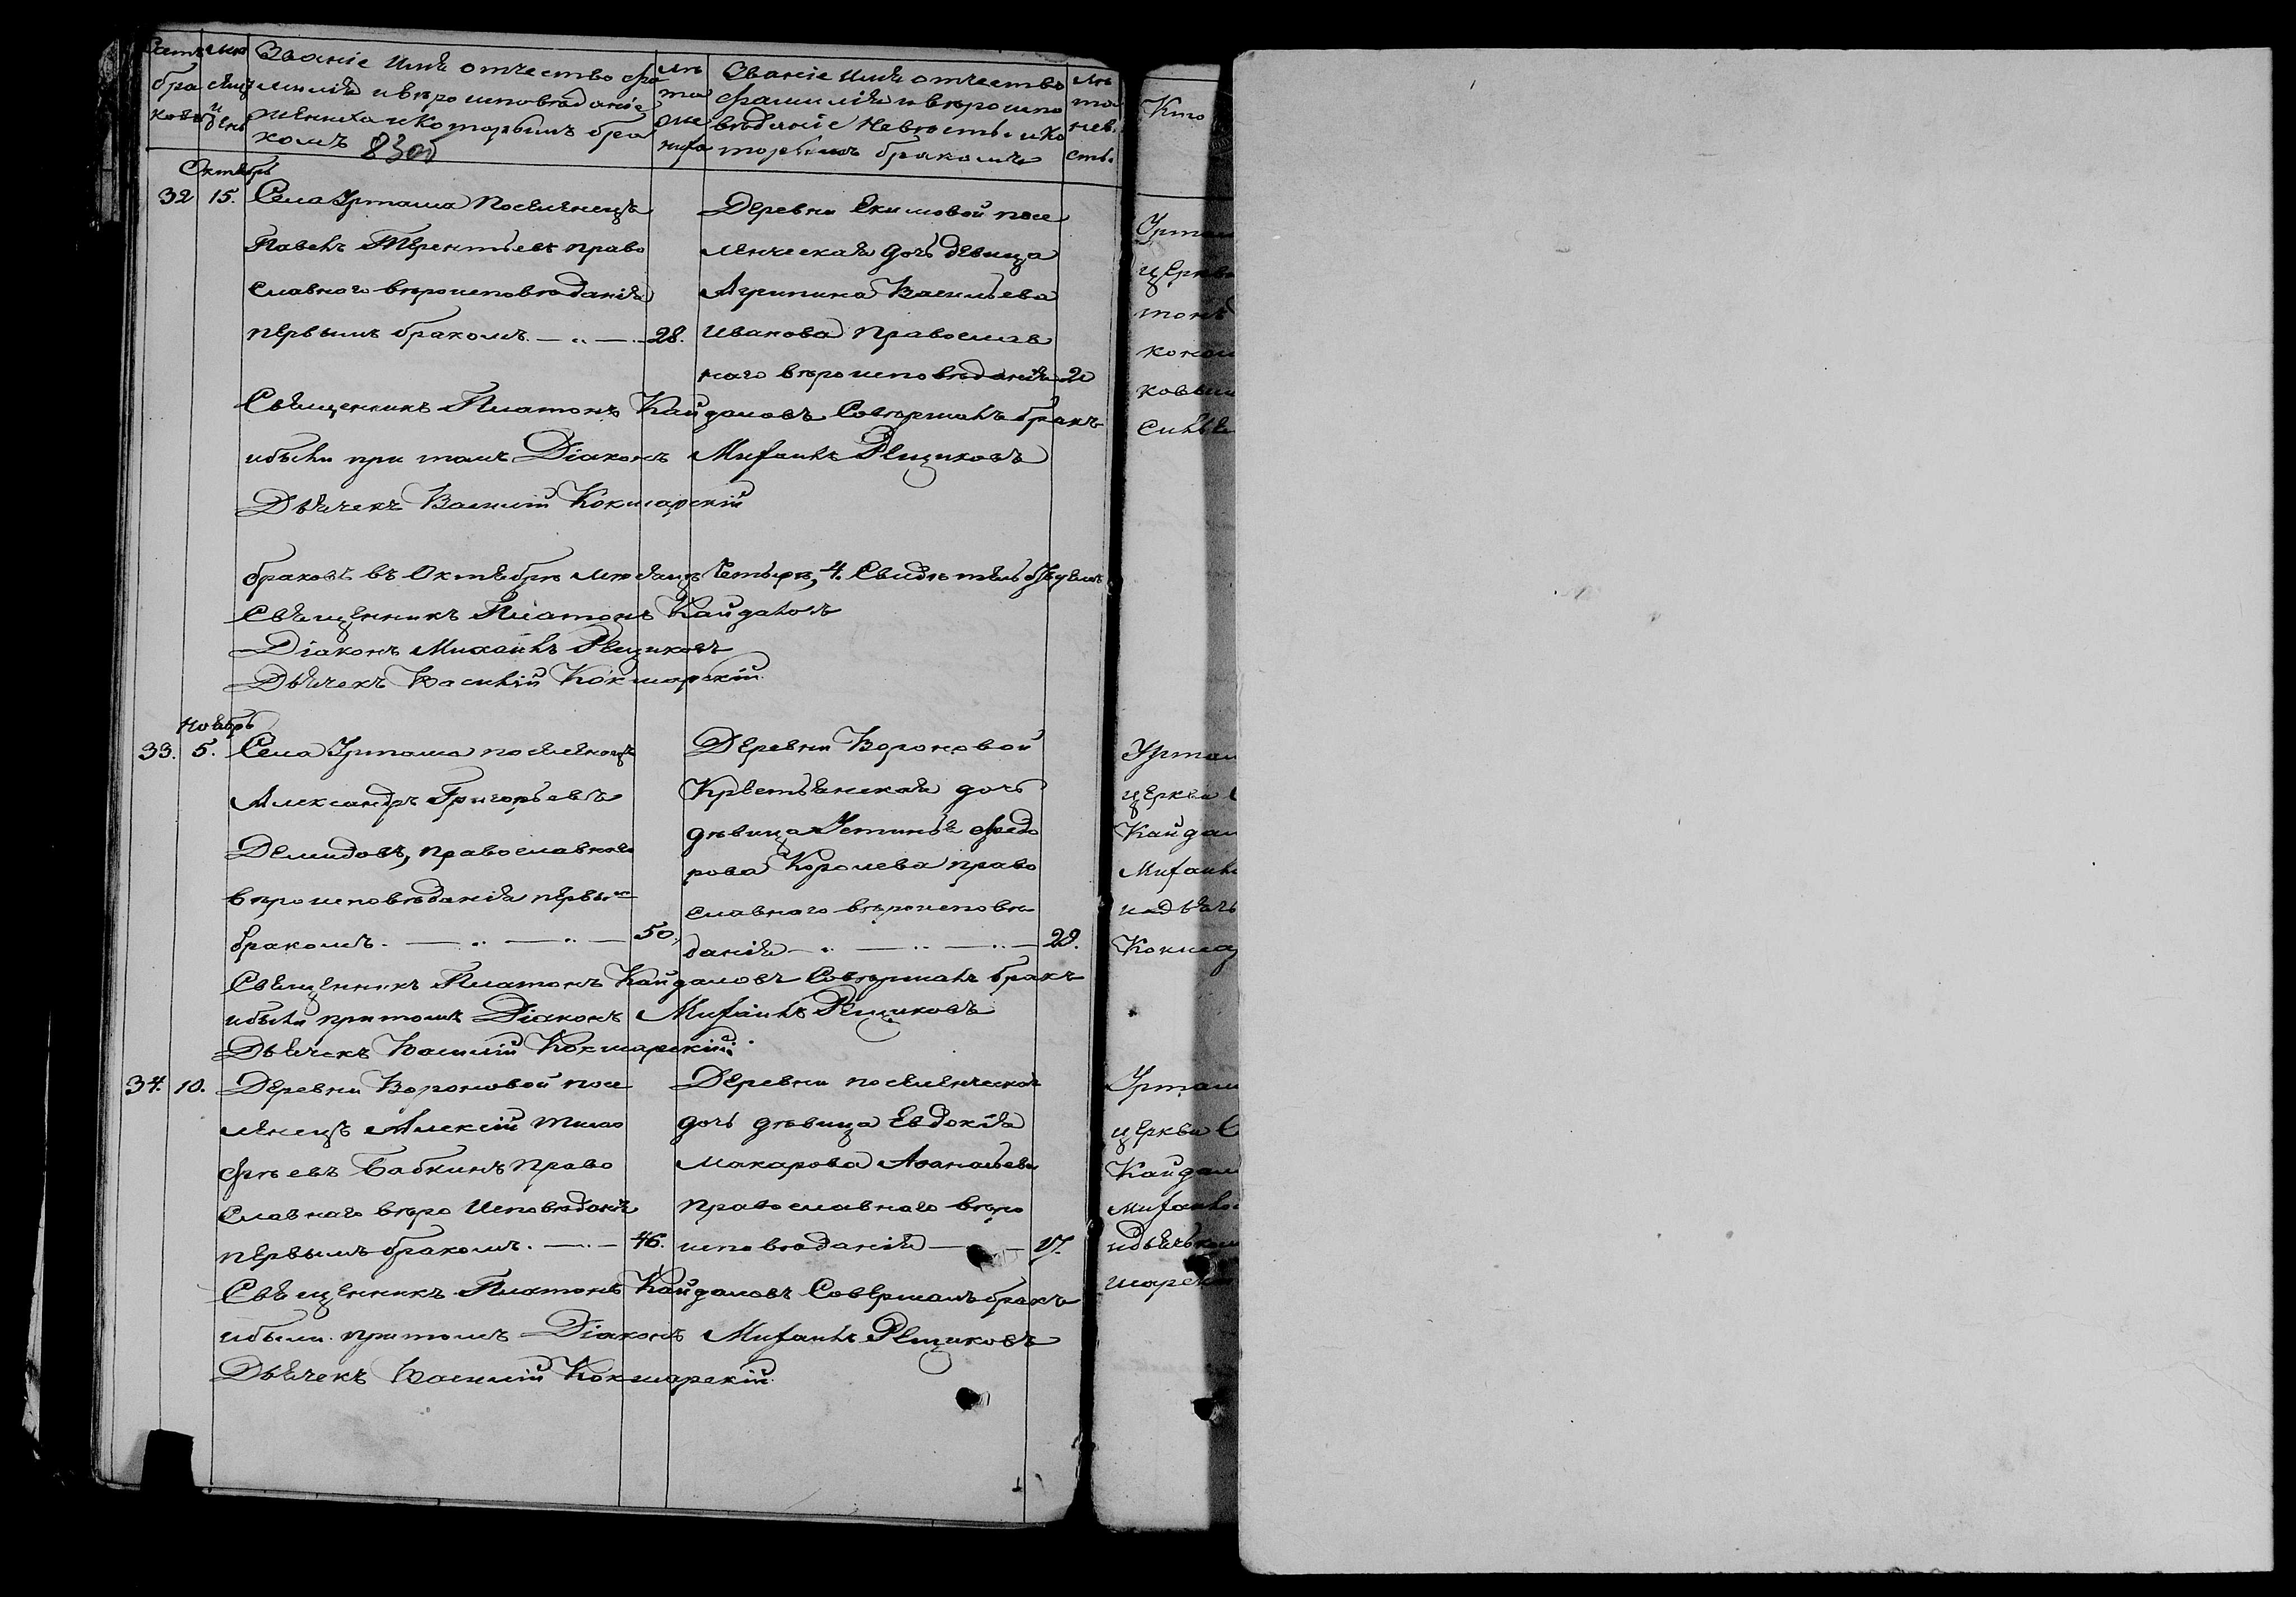 Счетъ
бра
ковъ
мѣ
сяцъ
и
день
Званіе имя отчество фа
милія и вѣроисповѣданіе
жениха и которымъ бра
комъ 8305
лѣ
та
же
ниха
Званіе имя отчество
фамилія и вѣроиспо
вѣданіе невѣсты и ко
торымъ бракомъ
лѣ
та
нев.
сты.
Кто
Октябрь
32 15. Села Уртама поселенецъ
Павелъ Терентьевъ право
славнаго вѣроисповѣданія
первымъ бракомъ. — „ — 28.
Деревни Екимовой посе
ленческая дочь девица
Агрипина Васильева
Иванова православ
наго вѣроисповѣданія
Священникъ Платонъ Кайдаловъ Совѣршалъ бракъ
и были при томъ Діаконъ Михаилъ Рещиковъ
Дьячекъ Василій Кокшарскій
браковъ въ Октябрѣ мѣсяцѣ Четыре, 4.
Священникъ Платонъ Кайдаловъ
Діаконъ Михаилъ Рещиковъ
Дьячекъ Василій Кокшарскій
Ноябрь
33. 5. Села Уртама поселенецъ
Александръ Григорьевъ
Демидовъ, православнаго
вѣроисповѣданія первым
бракомъ. — „ — „ — 50.
Деревни Вороновой
Крестьянская дочь
дѣвица Устинья Федо
рова Королева право
славнаго вѣроисповѣ
данія — „ — „ — „ — 28.
Священникъ Платонъ Кайдаловъ Совѣршалъ бракъ
и были притомъ Діаконъ Михаилъ Рещиковъ
Дьячекъ Василій Кокшарскій.
34. 10. Деревни Вороновой посе
ленецъ Алексій Тимо
фѣевъ Бабкинъ право
славнаго вѣро Исповѣданія
первымъ бракомъ. — „ — 46.
Деревни поселенческая
дочь дѣвица Евдокія
Макарова Аѳанасьева
православнаго вѣро
исповѣданія — — 17.
Священникъ Платонъ Кайдаловъ Совершалъ бракъ
и были притомъ Діаконъ Михаилъ Рещиковъ
Дьячекъ Василій Кокшарскій.
Уртам
церкви
Кайдал
Михаилъ
и дьячь
Кокша
Уртам
церкви С
Кайдал
Михаилъ
и дьячьком
шарск